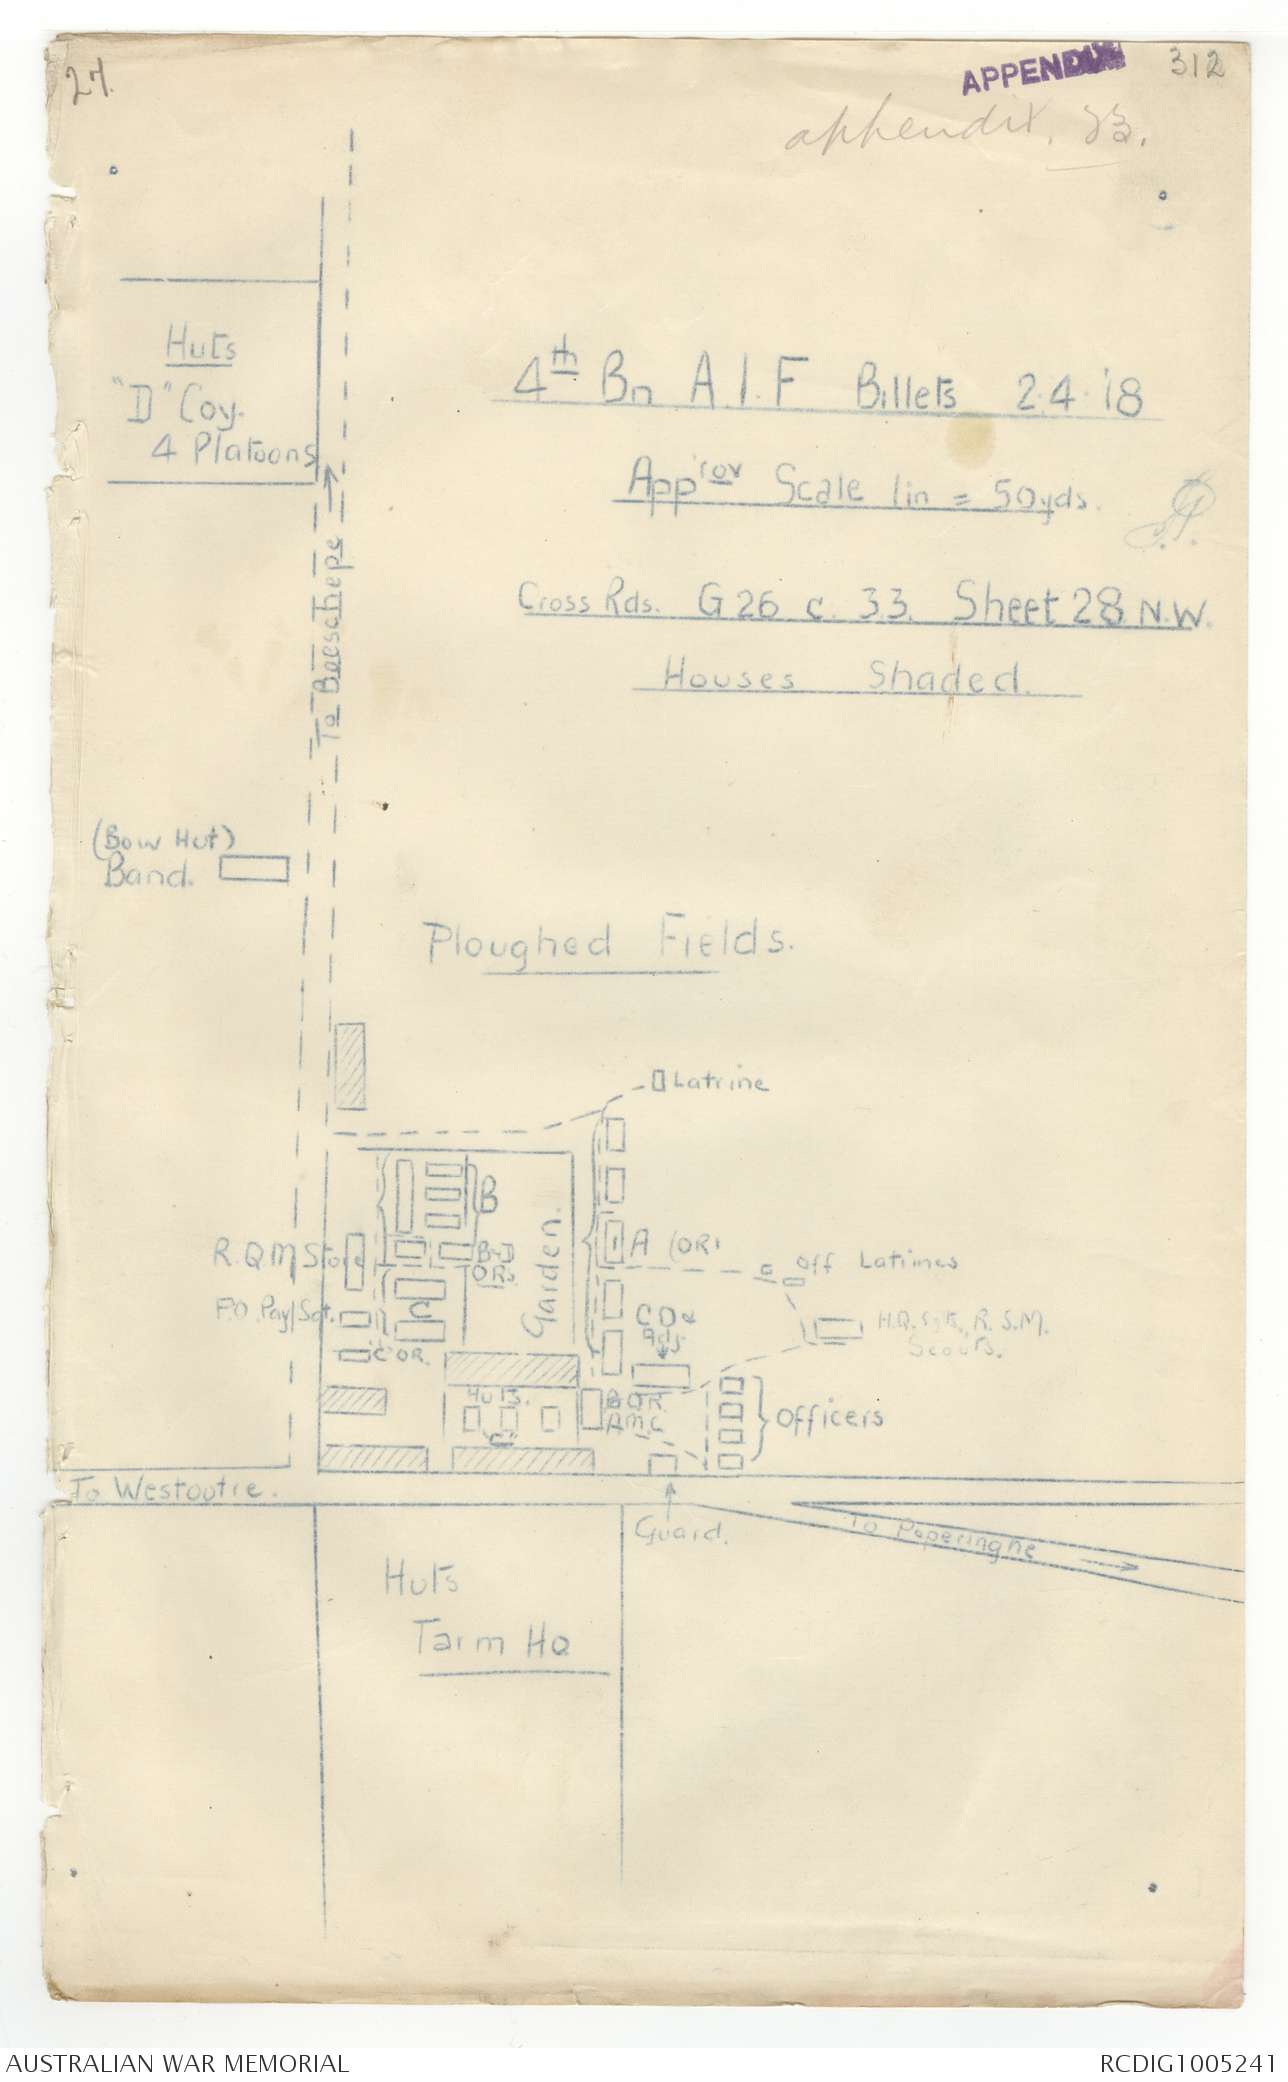 27.
APPENDIX
312
appendix. 23.
Huts
"D" Coy.
4 Platoons
4th Bn A.I.F Billets 2.4.18
App'rox Scale 1in = 50yds.
Cross Rds. G 26 c. 3.3. Sheet 28 N.W.
Houses Shaded.
To Boeschepe
(Bow Hut)
Band.
Ploughed Fields.
Latrine
B
R.Q.M Store
B
ORs
Garden.
A (OR)
Off Latrines
P.O. Pay/Sgt.
C
C.O &
Adj
H.Q. Sgts, R.S.M.
Scouts.
"C" OR.
Huts.
"C"
B OR.
AMC
Officers
To Westoutre.
Guard.
To Poperinghe
Huts
Tarm HQ
AUSTRALIAN WAR MEMORIAL
RCDIG1005241